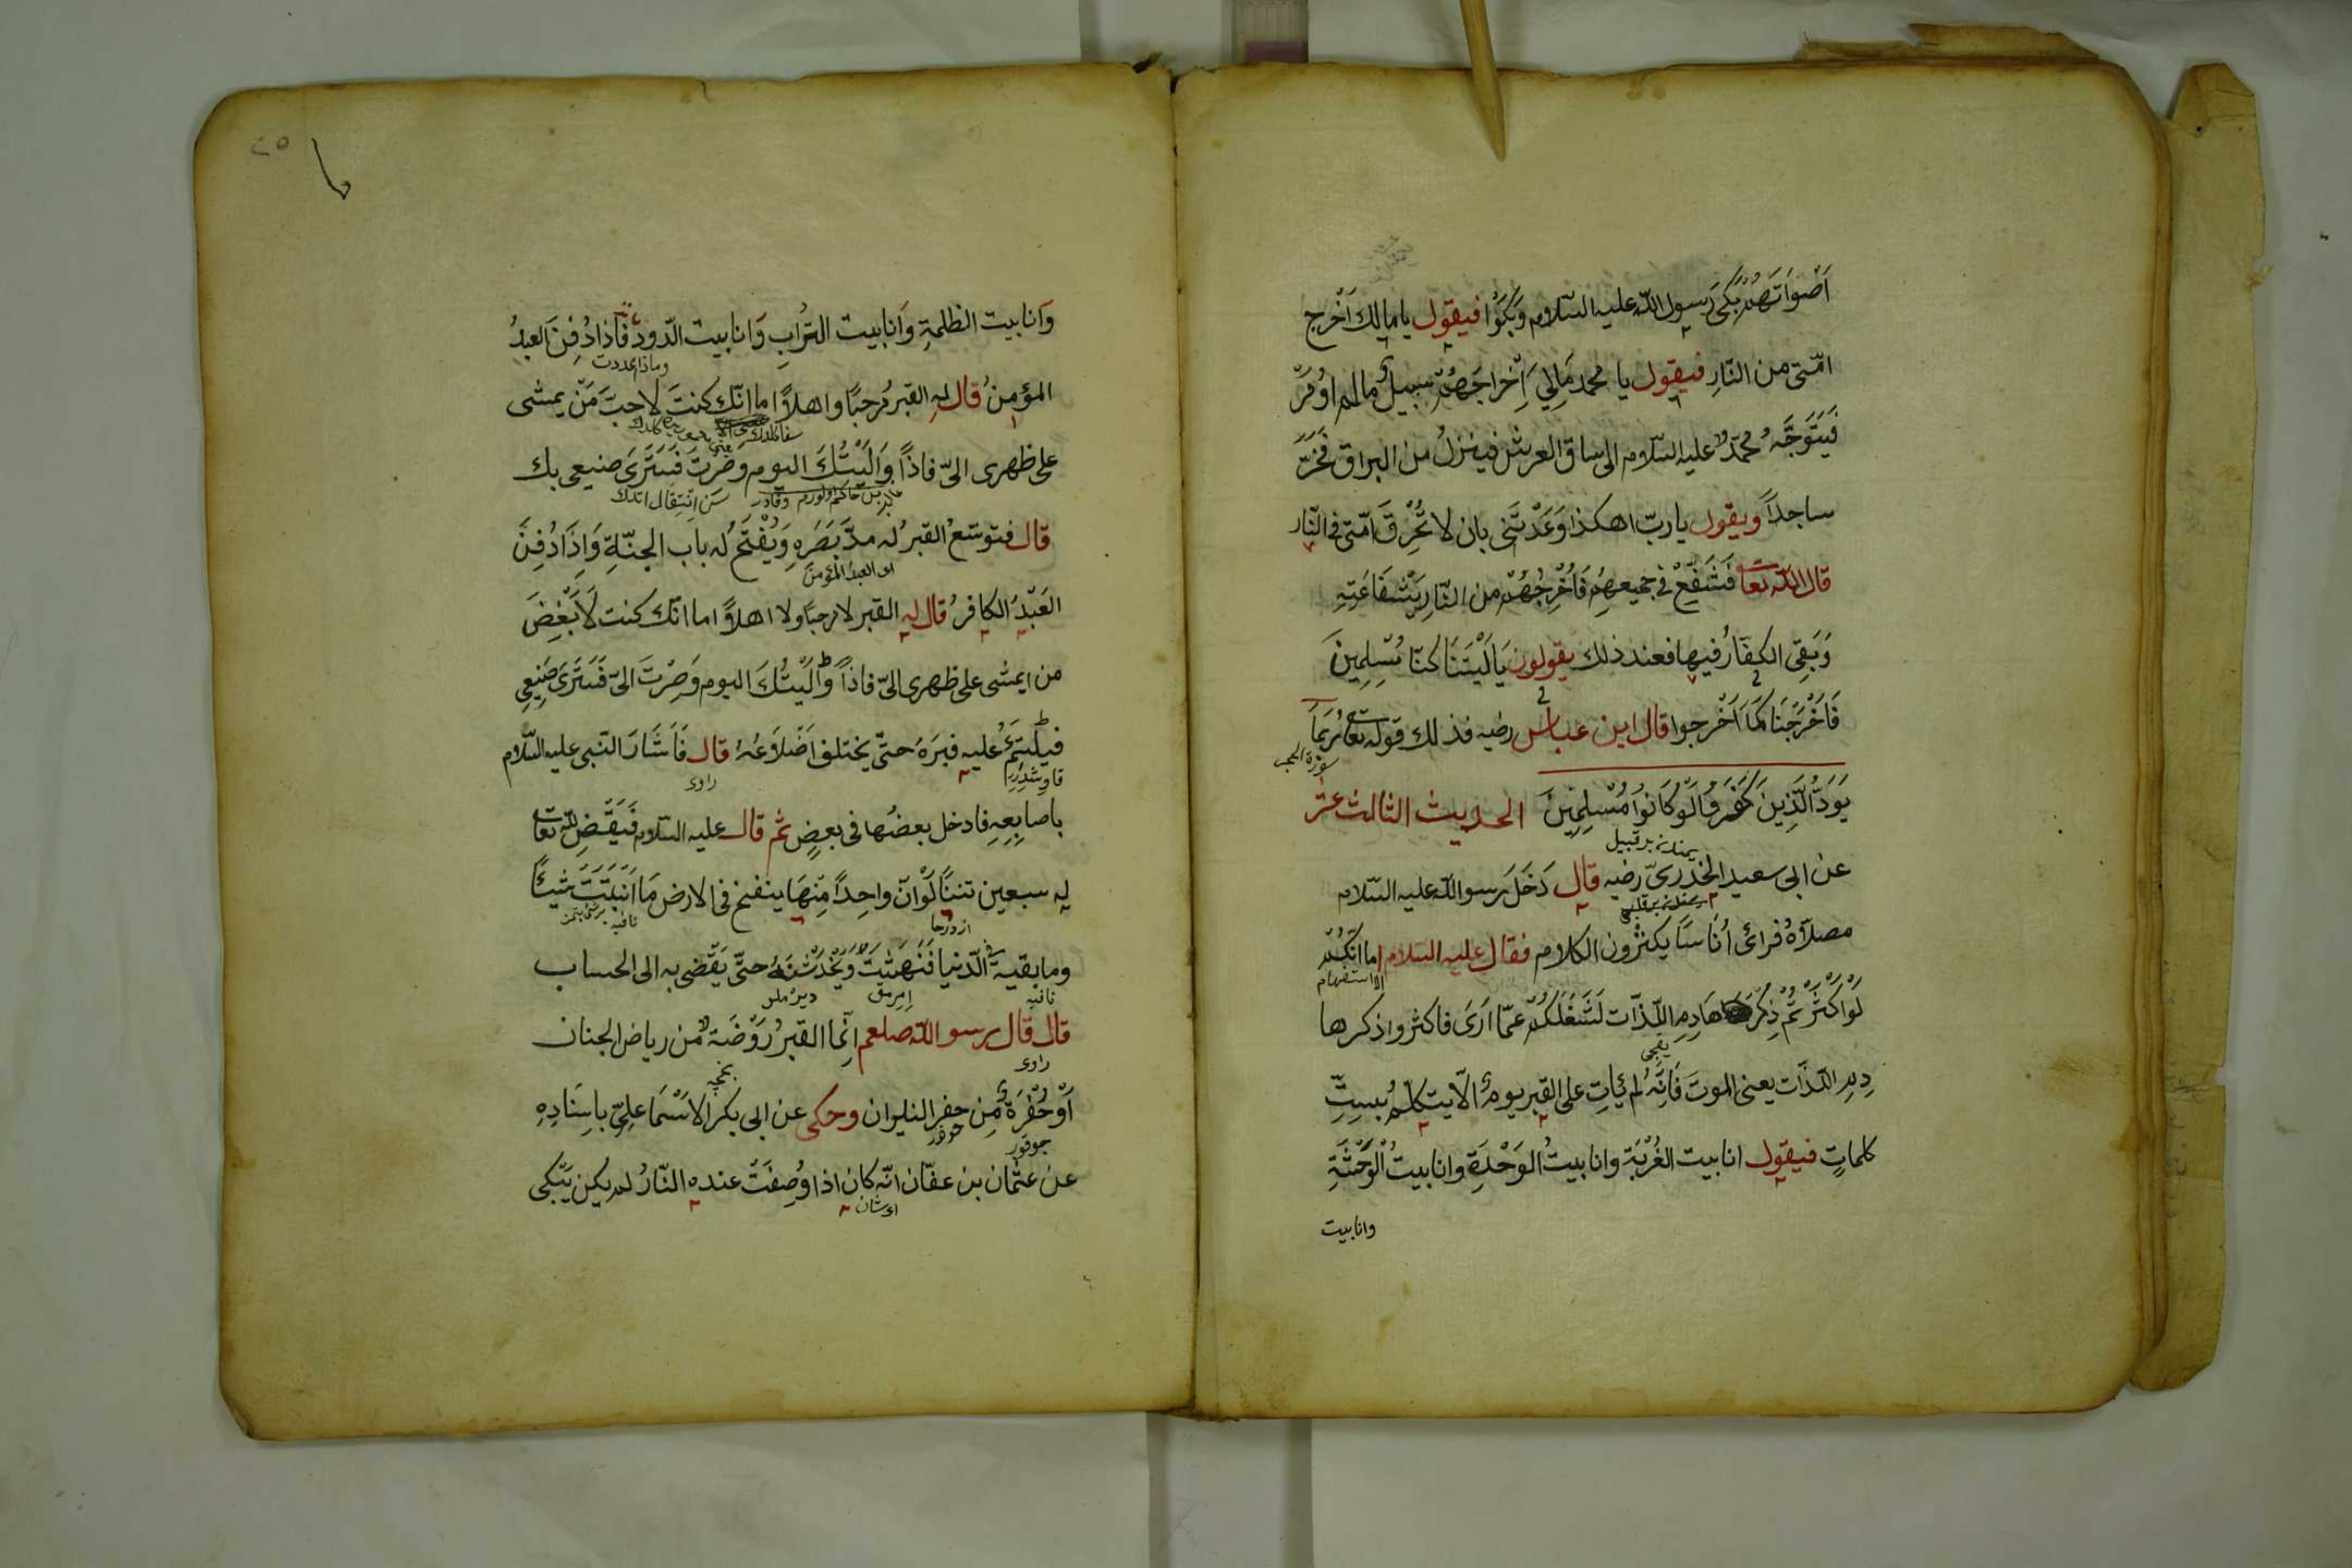 اَصْواتَهُمْ بَكَى رَسول الله عليه السّلام وَبَكَوْا فيقول يا مالك اَخْرِج
امّتى من النّارِ فيقول يا محمد مَالِي اِخْراجَهُمْ سبيل ما لم اوُمَرْ
فَيَتَوَجَّهُ محمّدٌ عليه السّلام الى ساق العرش فينزلُ من البراق فَخَرَّ
ساجداً ويقول يا ربّ اهكذا وَعَدْتَنى بان لا تُحْرِقَ امّتى فى النّار
قال الله تعا فَتَشَفَّعْ فى جميعهِم فَاُخْرِجُهُمْ من النّارِ بِشفَاعَتِهِ
وَبَقِىَ الكفّارُ فيها فعند ذلك يقولون يَا لَيْتَنَا كنّا مُسْلِمِينَ
فَاَخْرَجَنَا كَمَا اَخْرجوا قال ابن عباس رضيه فذلك قوله تعا رُبَمَا
سورة الحجر
يَوَدُّ الَّذِينَ كَفَرُوا لَوْ كَانُوا مُسْلِمِينَ الحديث الثالث عشر
عن ابى سعيد الخدرىّ رضيه قال دَخَلَ رسو الله عليه السّلام
مصلاّهُ فرائ اُنَاسًا يكثرون الكلام فقال عليه السلام اما انّكُمْ
الاستفهام
لَوْ اَكْثَرْتُمْ ذِكْرَ هَادِمِ اللّذّات لَشَغَلَكُمْ عمّا اَرَى فاكثروا ذكرها
دِمِ اللّذّات يعنى الموتَ فَاِنَّهُ لم يَاتِ على القبرِ يومٌ الّا يتكلّمُ بِسِتِّ
كلماتٍ فيقول انا بيت الغُرْبَة وانا بيتُ الوَحْدَةِ وانا بيتُ الْوَحْشَةِ
وانا بيت
وَانا بيت الظلمةِ وَانا بيت التُّرابِ وَانا بيت الدّود فَاذا دُفِنَ العبدُ
وماذا اعددت
المؤمنُ قال له القبر مُرحبًا واهلاً اما انّك كنتَ لاحبَّ مَنْ يمشى
على ظهرى الىّ فاذاً وَلِيْتُكَ اليوم وصرتَ فَسَتَرَى صنيعى بك
سن انتقال اتدك
قال فتوسّعُ القبرُ له مدَّ بَصَرِهِ وَيُفْتَحُ له باب الجنّةِ وَاِذَا دُفِنَ
اى العبد المؤمن
العَبْدُ الكافرُ قال له القبر لا مرحبًا ولا اهلاً اما انّك كنت لَاَبْغَضَ
من يمشى على ظهرى الىّ فاذاً وُلِّيْتُكَ اليوم وَصِرْتَ الىّ فَسَتَرَى صَنِيعِى
فيلْتئِمُ عليه قبرَهُ حتّى يختلف اَضْلاَعُهُ قال فَاَشَارَ النّبى عليه السّلام
راوى
باصابِعِهِ فادخل بعضُها فى بعضٍ ثم قال عليه السّلام فَيَقْضِ الله تعا
له سبعين تنينًا لَوْ انّ واحِداً مِنْهَا ينفخ فى الارض مَا اَنْبَتَتْ شيئًا
نافيه
وما بقيت الدّنيا فَنَهَشَتْ وَيُخْدَشْنَهُ حتَّى يَقْضى به الى الحساب
نافيه
قال قال رسو الله صلعم اِنّما القبرُ رَوْضَةٌ من رياض الجنان
راوى بغچه
اَوْ حُفْرَةٌ مِن حفرِ النيران وحكى عن ابى بكر الاسْمَاعلِىِّ باسِنَادِهِ
جوقور
عن عثمان بن عفّان انّه كان اذا وُصِفَتْ عنده النّارُ لم يكن يَبْكى
اى شان